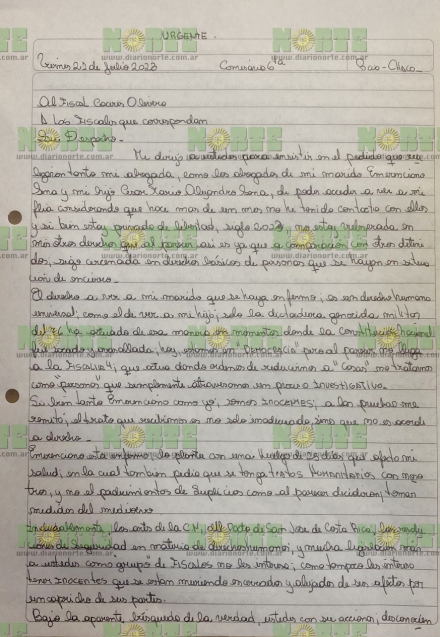 URGENTE.
Viernes 21 de Julio 2023 Comisaría 6ta Rcia-Chaco
Al Fiscal Caceres Olivera
A Los Fiscales que correspondan
Su Despacho.-
Me dirijo a ustedes para insistir en el pedido que
tanto mi abogada, como los abogados de mi marido Emerenciano
Sena y mi hijo Cesar Mario Alejandro Sena, de poder acceder a ver a mi
flia considerando que hace mas de un mes no he tenido contacto con ellos
y si bien estoy privada de libertad, siglo 2023, no estoy vulnerada en
mis otros derechos que al parecer asi es ya que a comparación con otros deteni-
dos, sigo cercenada en derechos básicos de personas que se hayan en situa-
ción de encierro.-
El derecho a ver a mi marido que se haya enfermo, es un derecho humano
universal; como el de ver a mi hijo; solo la dictadura genocida militar
del 76 ha actuado de esa manera en momentos donde la Constitución Nacional
fue avallada, hoy estamos en "Democracia" pero al parecer no llega
a la Fiscalia 4; que actua dando ordenes de reducirnos a "cosas" no tratarnos
como personas que simplemente atravesamos un proceso Investigativo.
Su bien tanto Emerenciano como yo, somos INOCENTES; a las pruebas me
remito, el trato que recibimos no solo inadecuado, sino que no es acorde
a derecho.-
Emerenciano esta enfermo, lo planté con una huelga de 25 días que afectó mi
salud; en la cual tambien pedia que se tenga tratos Humanitarios con noso-
tros, y no el padecimientos de Suplicios como al parecer decidieron; tomar
medidas del medioevo.-
Indudablemente, los arts de la C.N, del Pacto de San Jose de Costa Rica, los
de seguridad en materia de derechos humanos, y mucha legislación mas
a ustedes como "grupo" de Fiscales no les interesa; como tampoco les interesa
tener INOCENTES que se estan muriendo encerrados y alejados de sus afectos por
un capricho de sus partes.
Bajo la aparente búsqueda de la verdad, ustedes con su acciones, desconocen
NORTE
www.diarionorte.com.ar